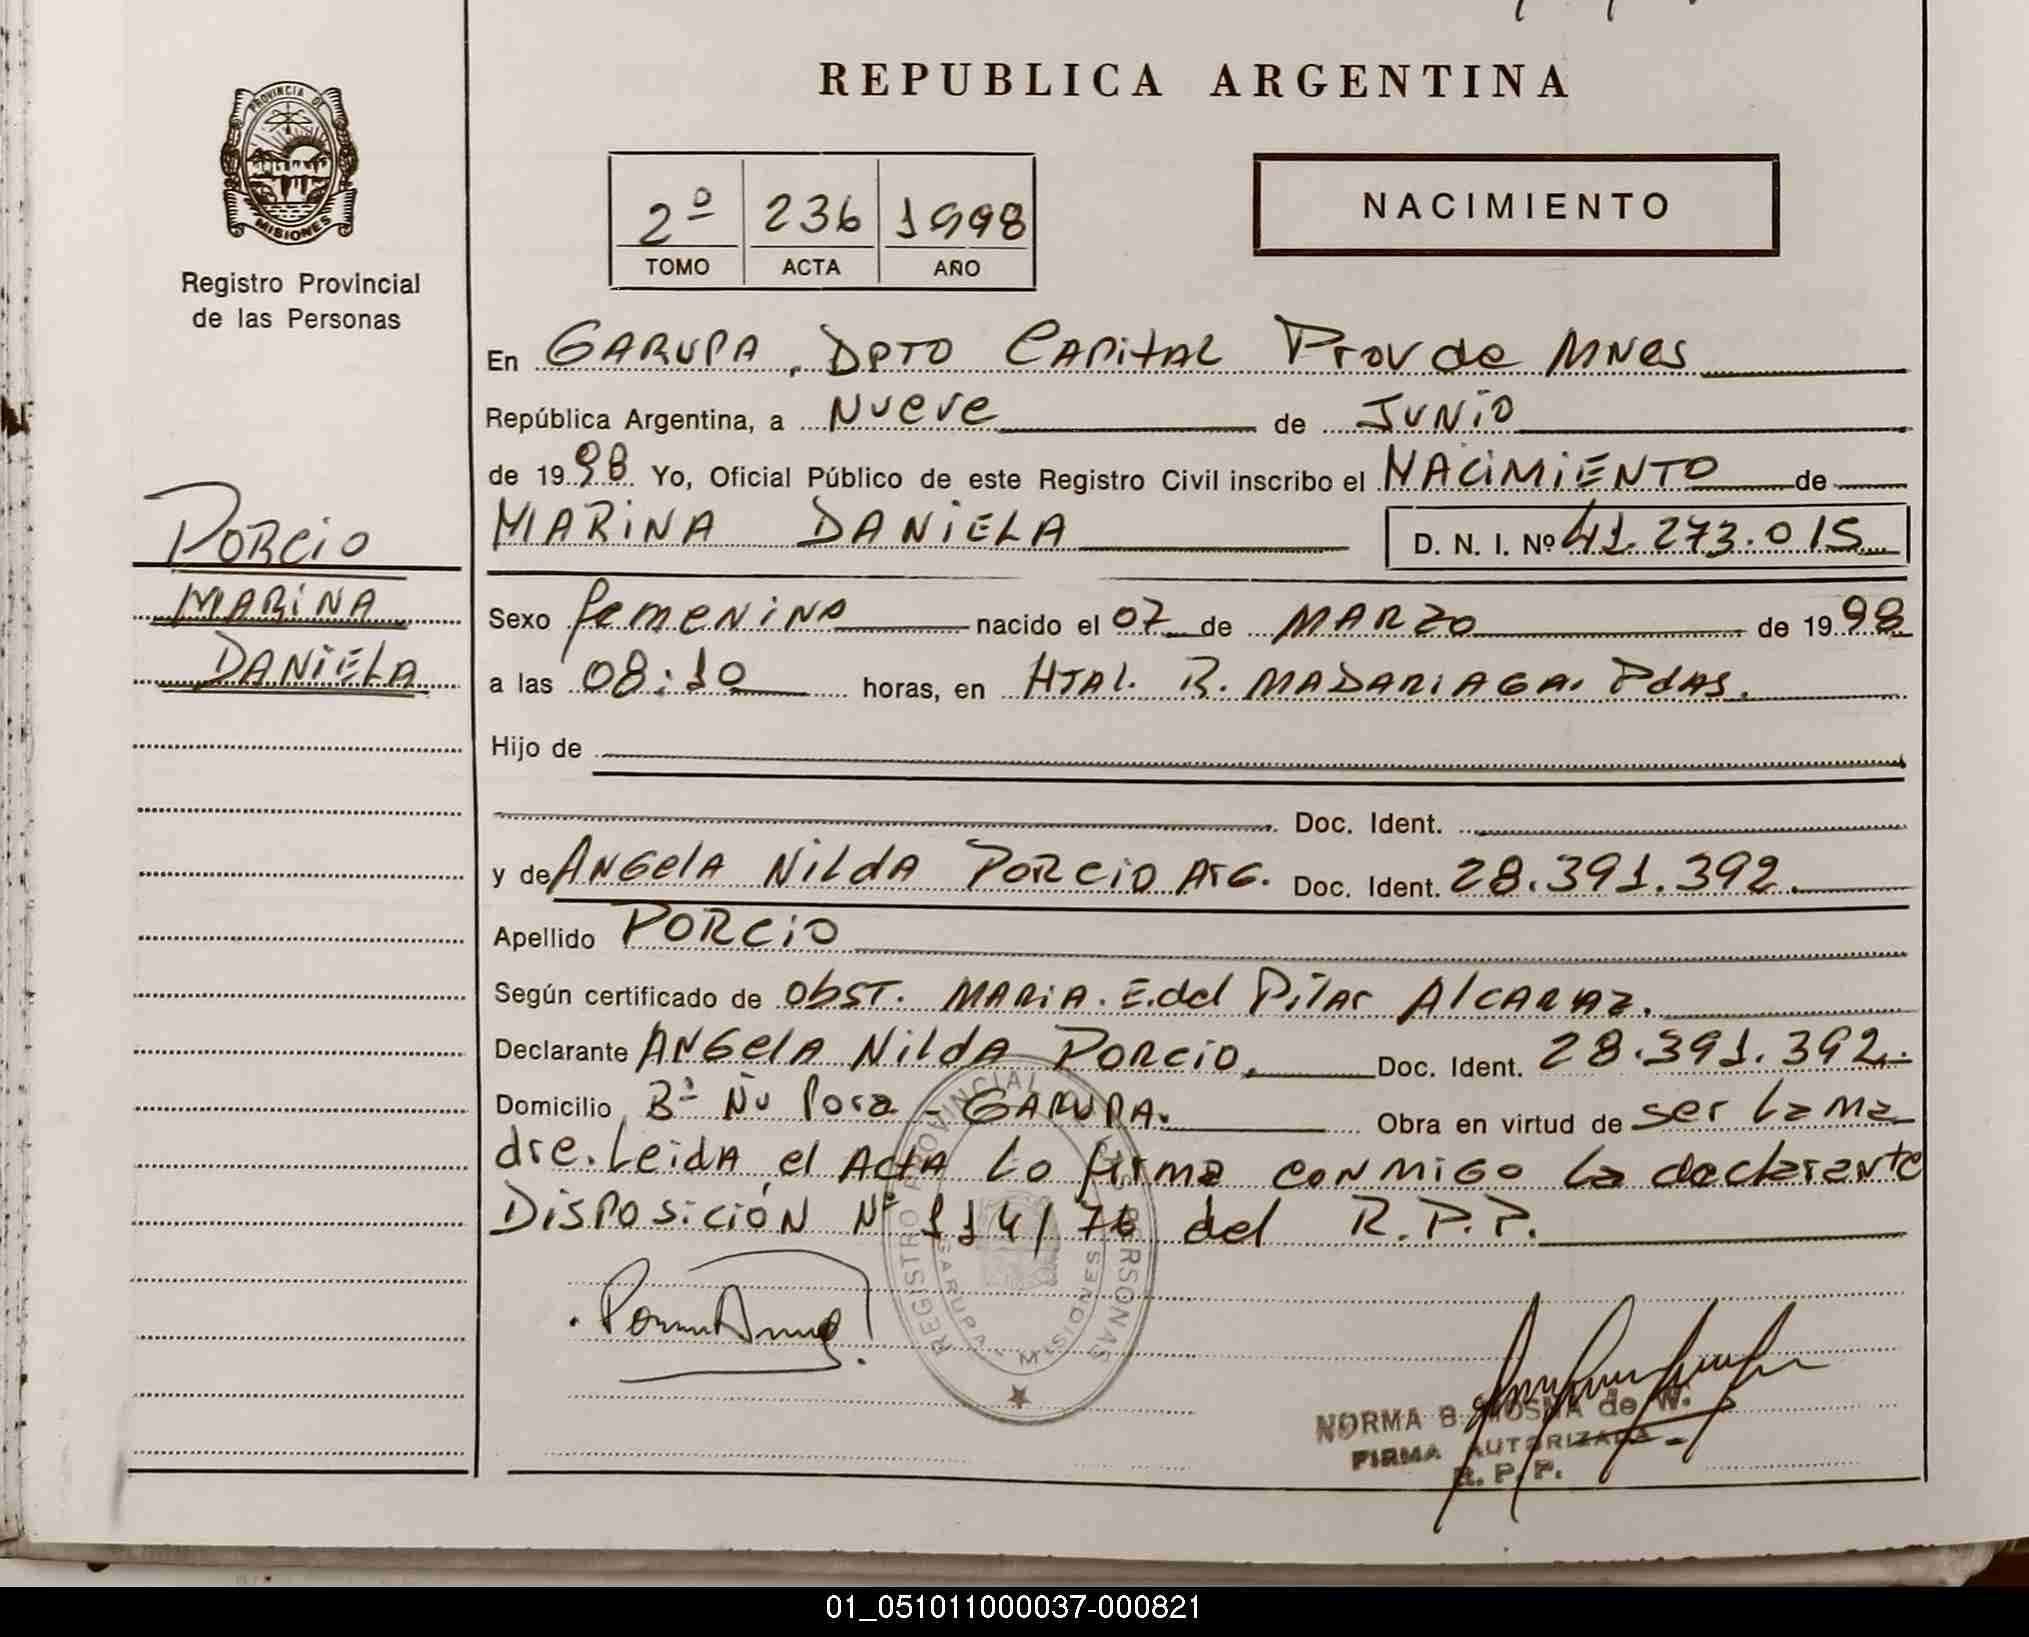 REPUBLICA ARGENTINA
PROVINCIA DE
MISIONES
Registro Provincial
de las Personas
2º 236 1998
TOMO ACTA AÑO
NACIMIENTO
En GARUPA, DPTO CAPITAL Prov de MNes
República Argentina, a NUeve de JUNIO
de 1998 Yo, Oficial Público de este Registro Civil inscribo el NACIMIENTO de
MARINA DANIELA D. N. I. Nº 41.273.015
PORCIO
MARINA
DANIELA
Sexo femenino nacido el 07 de MARZO de 1998
a las 08:10 horas, en HTAL. R. MADARIAGA. PdAS.
Hijo de
Doc. Ident.
y de ANGelA NildA PORCIO ArG. Doc. Ident. 28.391.392.
Apellido PORCIO
Según certificado de obST. MARIA. E. del Pilar AlCARAZ.
Declarante ANGelA NildA PORCIO. Doc. Ident. 28.391.392.
Domicilio Bº Ñu Pora - GARUPA. Obra en virtud de ser la ma
dre. Leida el Acta lo firma conmigo la declarante
DISPOSICIÓN Nº 114/76 del R.P.P.
REGISTRO PROVINCIAL DE LAS PERSONAS
GARUPA - MISIONES
NORMA B. MOSNA de W.
FIRMA AUTORIZADA
R. P. P.
01_051011000037-000821